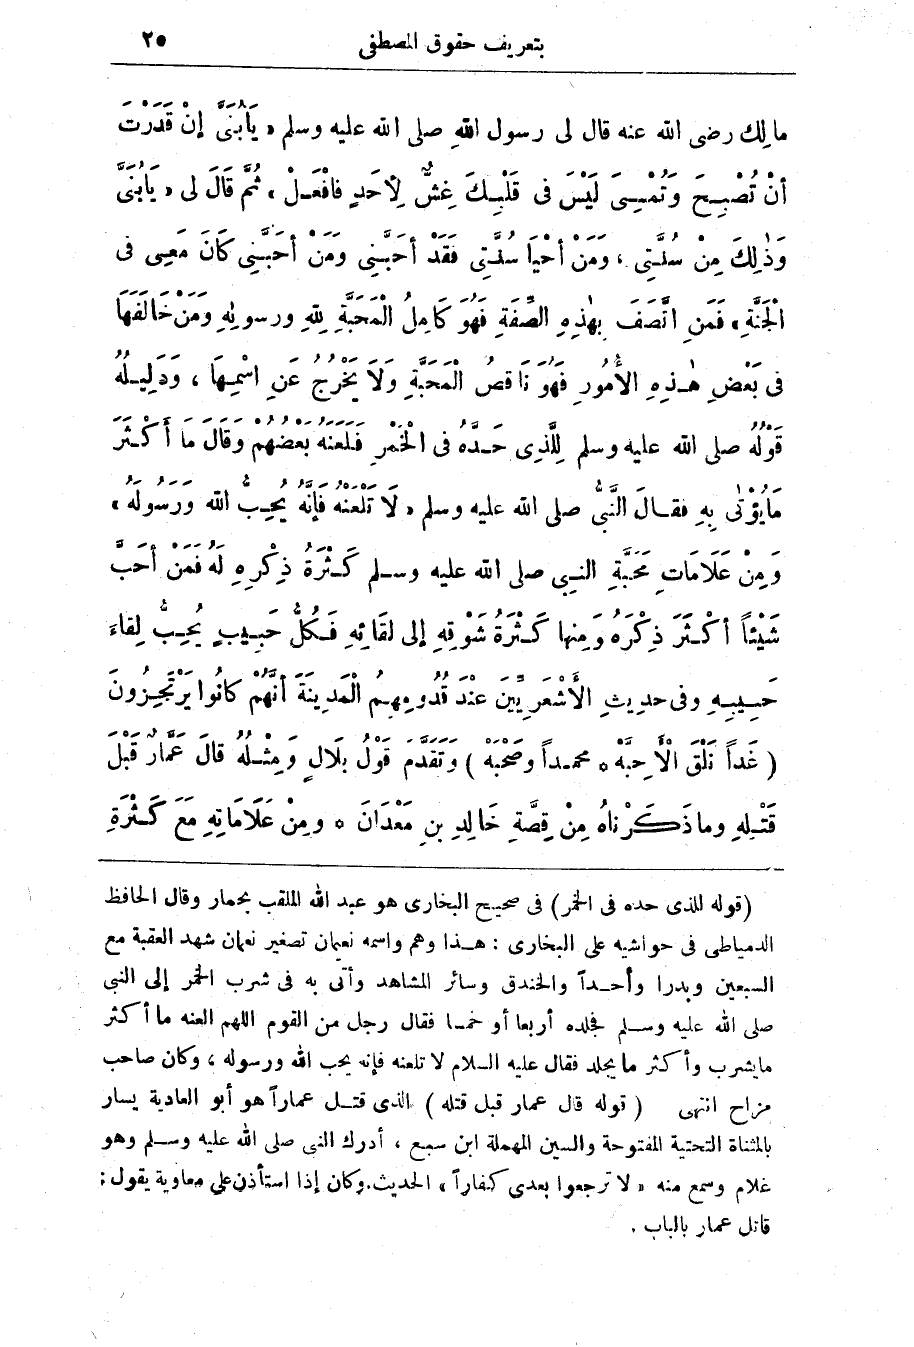 بتعريف حقوق المصطفى ٢٥
مالِك رضى الله عنه قال لى رسول الله صلى الله عليه وسلم « يَابُنَىَّ إنْ قَدَرْتَ
أنْ تُصْبِحَ وَتُمْسِىَ لَيْسَ فى قَلْبِكَ غِشٌّ لِأَحَدٍ فافْعَلْ ، ثُمَّ قَالَ لى « يَابُنَىَّ
وَذٰلِكَ مِنْ سُنَّتِى ، وَمَنْ أحْيَا سُنَّتِى فَقَدْ أحَبَّنِى ومَنْ أحَبَّنِى كَانَ مَعِى فى
الْجَنَّةِ » فَمَنِ اتَّصَفَ بِهٰذِهِ الصِّفَةِ فَهُوَ كَامِلُ الْمَحَبَّةِ لِلّهِ ورسولِهِ وَمَنْ خَالَفَهَا
فى بَعْضِ هٰذِهِ الأُمُورِ فَهُوَ نَاقِصُ الْمَحَبَّةِ وَلَا يَخْرُجُ عَنِ اسْمِهَا ، وَدَلِيلُهُ
قَوْلُهُ صلى الله عليه وسلم لِلَّذِى حَدَّهُ فى الْخَمْرِ فَلَعَنَهُ بَعْضُهُمْ وَقَالَ مَا أَكْثَرَ
مَايُؤْتٰى بِهِ فقَالَ النَّبىُّ صلى الله عليه وسلم « لَا تَلْعَنْهُ فإنَّهُ يُحِبُّ اللهَ وَرَسُولَهُ »
وَمِنْ عَلَامَاتِ مَحَبَّةِ النبِى صلى الله عليه وسلم كَثْرَةُ ذِكْرِهِ لَهُ فَمَنْ أحَبَّ
شَيْئاً أكْثَرَ ذِكْرَهُ وَمِنها كَثْرَةُ شَوْقِهِ إلى لقَائِهِ فَكُلُّ حَبِيبٍ يُحِبُّ لِقاءَ
حَبِيبِهِ وفى حديثِ الأَشْعَرِيِّينَ عِنْدَ قُدُومِهِمُ الْمَدِينَةَ أنَّهُمْ كانُوا يَرْتَجِزُونَ
( غَداً نَلْقَ الْأَحِبَّهْ * محمداً وصَحْبَهْ ) وَتَقَدَّمَ قَوْلُ بِلَالٍ وَمِثْلُهُ قالَ عَمَّارٌ قَبْلَ
قَتْلِهِ وماذَكَرْناهُ مِنْ قِصَّةِ خَالِدِ بنِ مَعْدَانَ * ومِنْ عَلَامَاتِهِ مَعَ كَثْرَةِ
(قوله للذى حده فى الخمر) فى صحيح البخارى هو عبد الله الملقب بحمار وقال الحافظ
الدمياطى فى حواشيه على البخارى : هذا وهم واسمه نعيمان تصغير نعمان شهد العقبة مع
السبعين وبدرا وأحداً والخندق وسائر المشاهد وأتى به فى شرب الخمر إلى النبى
صلى الله عليه وسلم فجلده أربعا أو خمسا فقال رجل من القوم اللهم العنه ما أكثر
مايشرب وأكثر مايجلد فقال عليه السلام لا تلعنه فإنه يحب الله ورسوله ، وكان صاحب
مزاح انتهى ( قوله قال عمار قبل قتله ) الذى قتل عماراً هو أبو العادية يسار
بالمثناة التحتية المفتوحة والسين المهملة ابن سبع ، أدرك النبى صلى الله عليه وسلم وهو
غلام وسمع منه « لا ترجعوا بعدى كفاراً » الحديث. وكان إذا استأذن على معاوية يقول :
قاتل عمار بالباب .